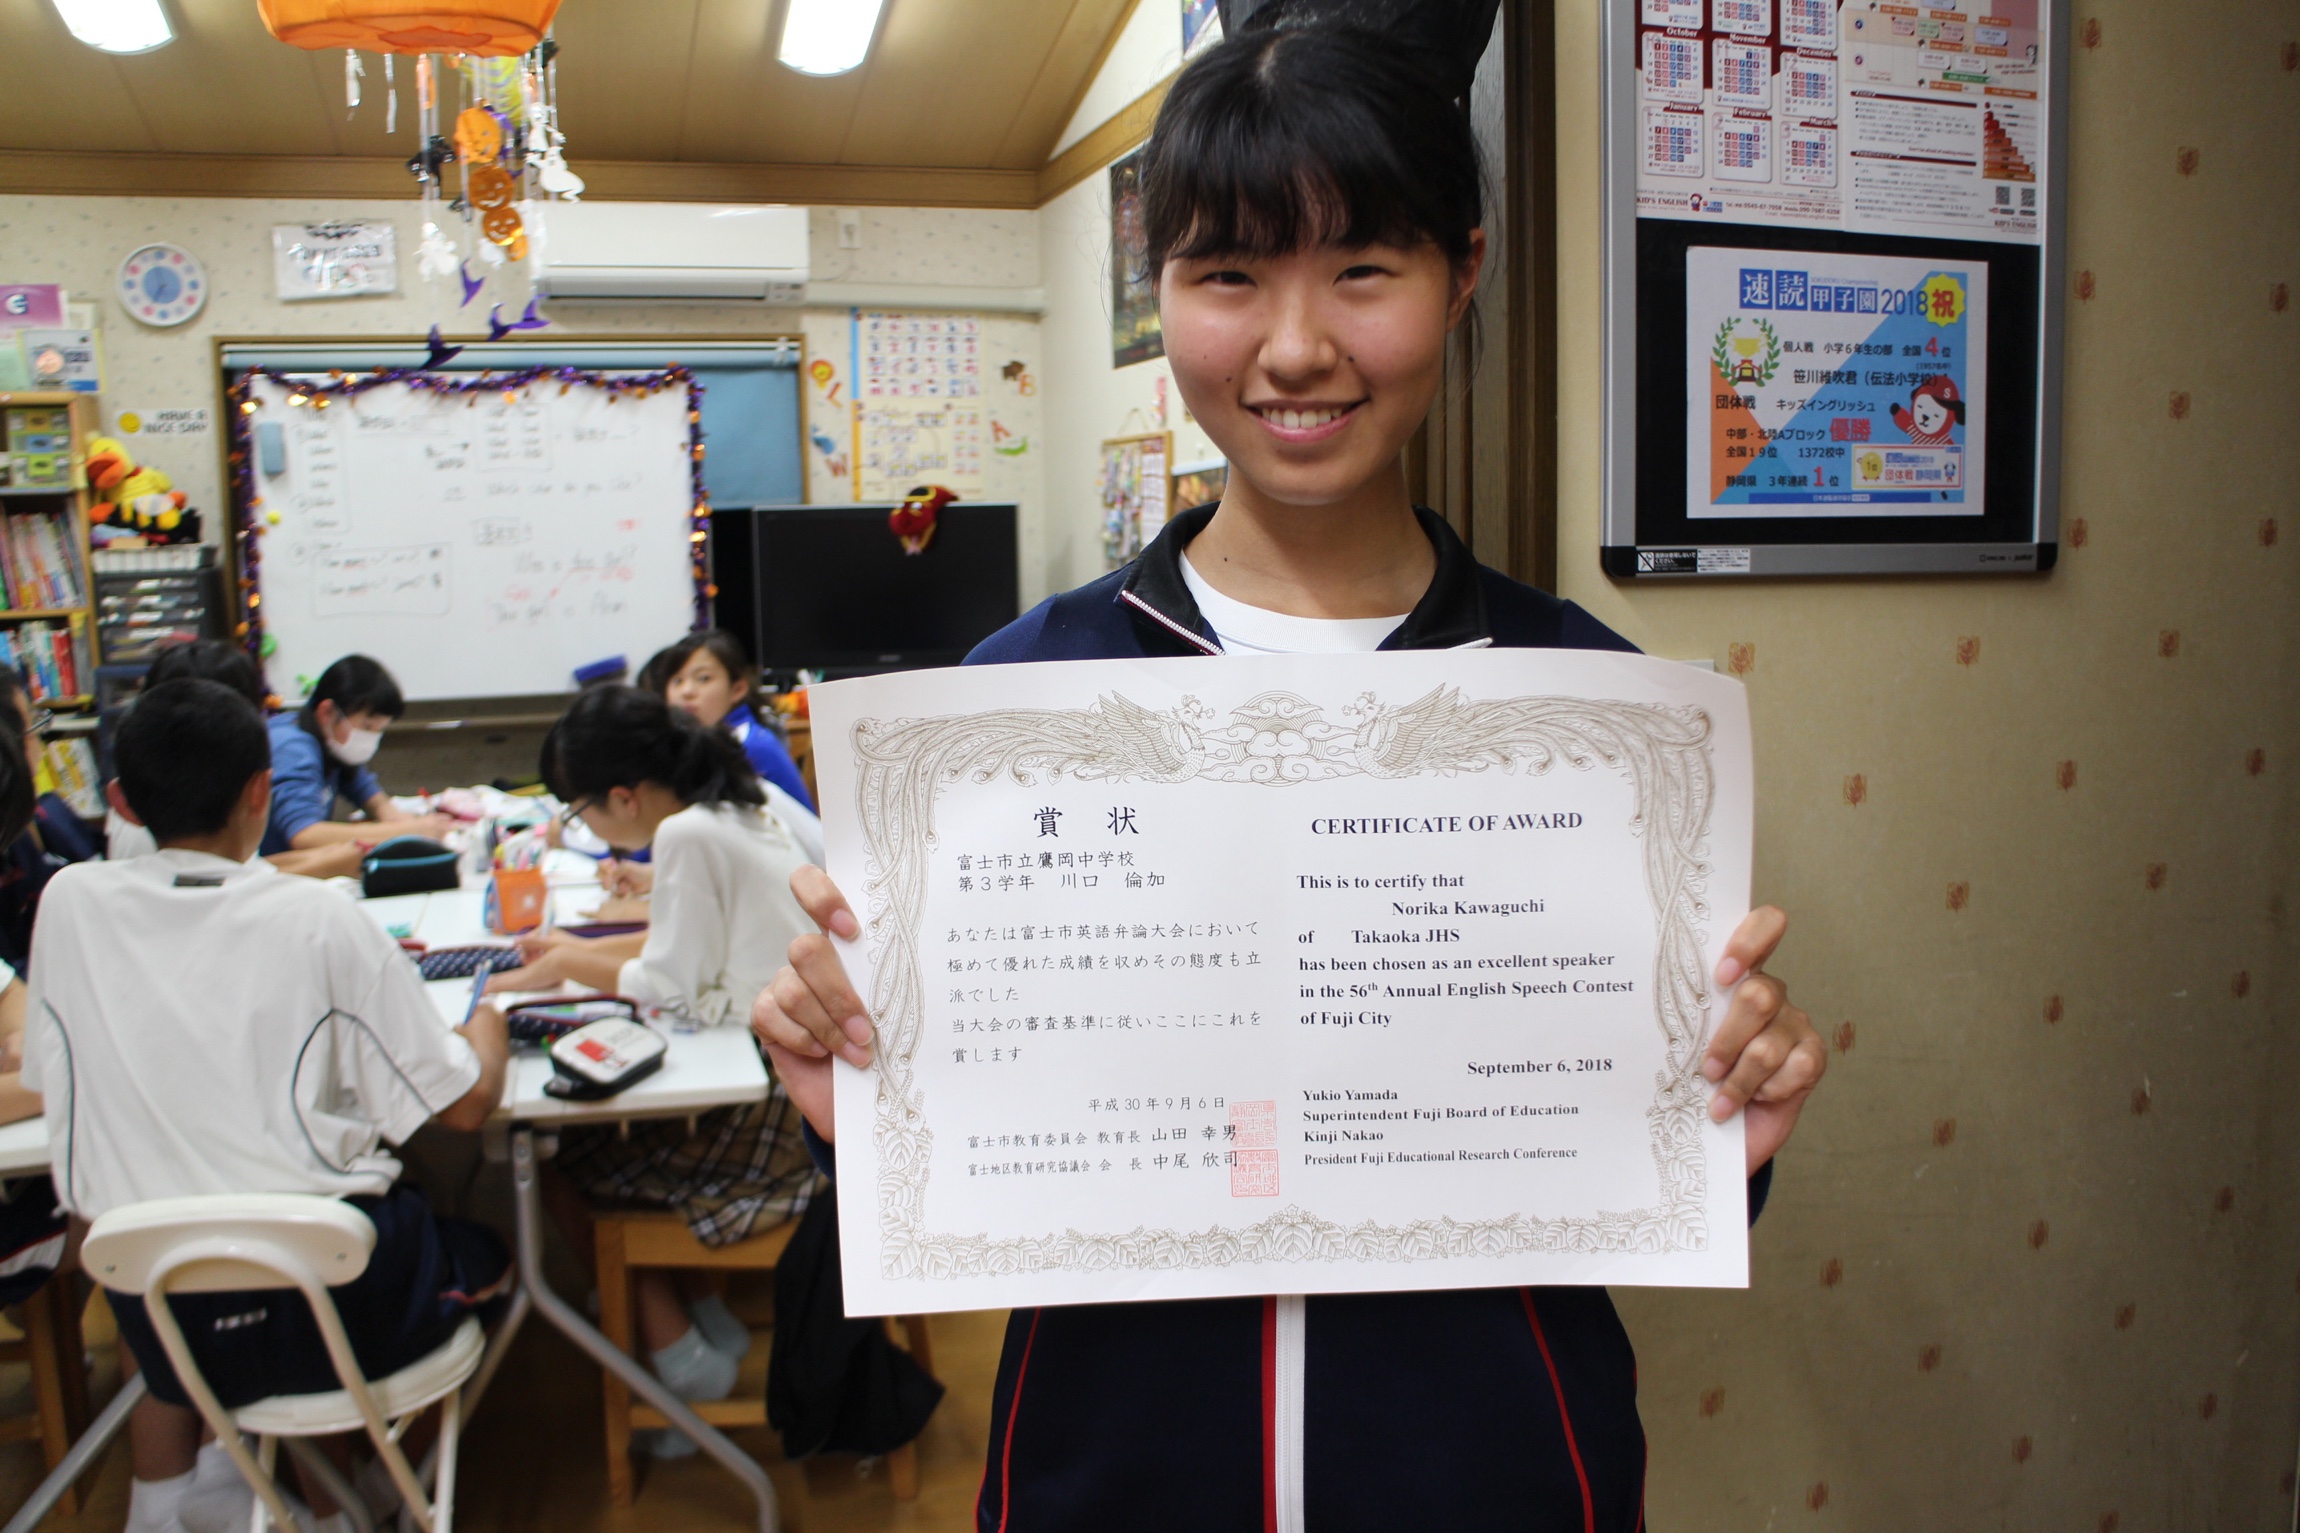 賞 状
富士市立鷹岡中学校
第3学年 川口 倫加
あなたは富士市英語弁論大会において
極めて優れた成績を収めその態度も立
派でした
当大会の審査基準に従いここにこれを
賞します
平成30年9月6日
富士市教育委員会 教育長 山田 幸男
富士地区教育研究協議会 会 長 中尾 欣司
CERTIFICATE OF AWARD
This is to certify that
Norika Kawaguchi
of Takaoka JHS
has been chosen as an excellent speaker
in the 56th Annual English Speech Contest
of Fuji City
September 6, 2018
Yukio Yamada
Superintendent Fuji Board of Education
Kinji Nakao
President Fuji Educational Research Conference
October
November
December
January
February
March
KID'S ENGLISH
速読甲子園2018祝
個人戦 小学6年生の部 全国4位
笹川維吹君(伝法小学校)
団体戦 キッズイングリッシュ
中部・北陸Aブロック 優勝
全国19位 1372校中
静岡県 3年連続1位
HAVE A
NICE DAY